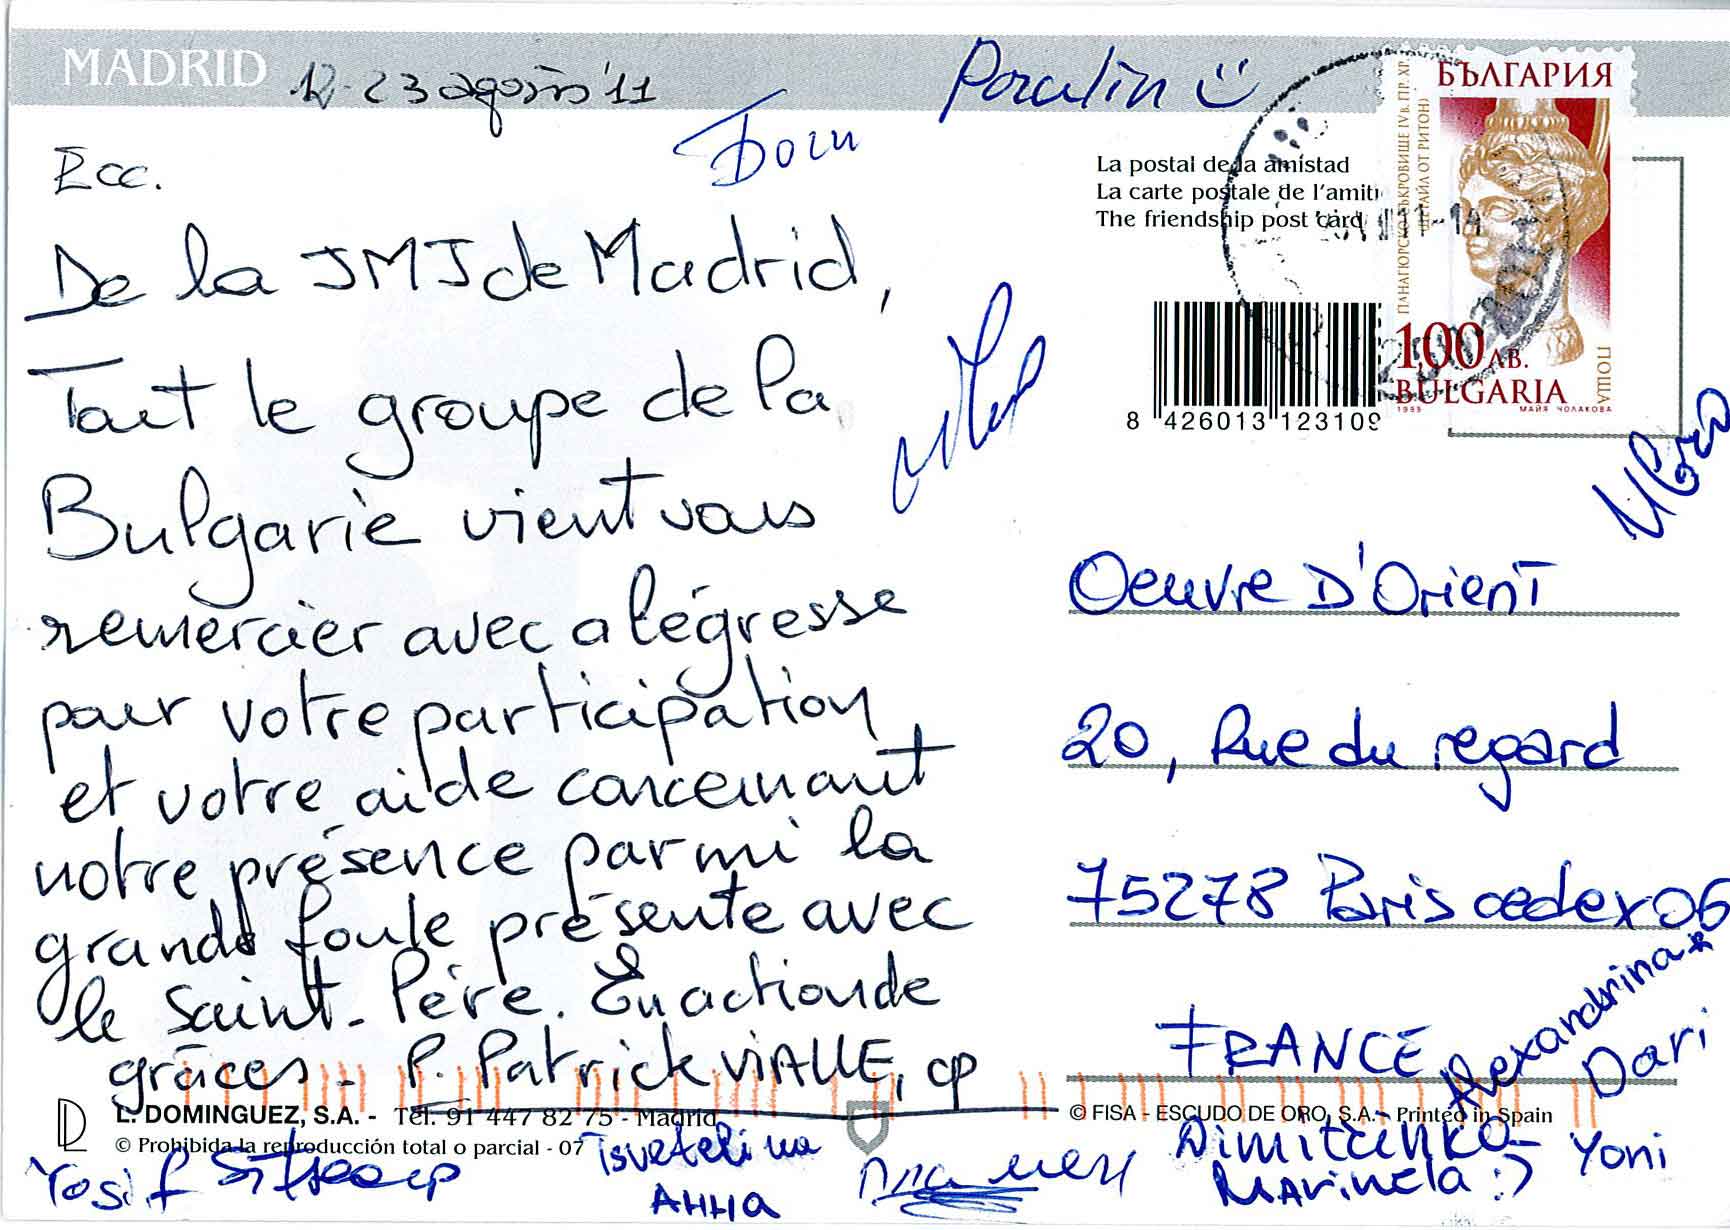 MADRID
12-23 agosto '11
Rozalin
Боги
Ecc.
De la JMJ de Madrid,
Tout le groupe de la
Bulgarie vient vous
remercier avec alégresse
pour votre participation
et votre aide concernant
notre présence parmi la
grande foule présente avec
le Saint-Père. En action de
grâces - P. Patrick VIALLE, cp
La postal de la amistad
La carte postale de l'amiti
The friendship post card
БЪЛГАРИЯ
ПАНАГЮРСКО СЪКРОВИЩЕ IV в. ПР. ХР.
(ДЕТАЙЛ ОТ РИТОН)
1,00 ЛВ.
BULGARIA
ПОЩА
1999 МАЙЯ ЧОЛАКОВА
8 426013 123109
Oeuvre D'Orient
20, Rue du regard
75278 Paris cedex 06
FRANCE
Alexandrina
Dari
Yoni
L. DOMINGUEZ, S.A. - Tel. 91 447 82 75 - Madrid
© Prohibida la reproducción total o parcial - 07
© FISA - ESCUDO DE ORO, S.A. - Printed in Spain
Yosif
Tsvetelina
АННА
Пламен
Dimitrinka
Marinela :)